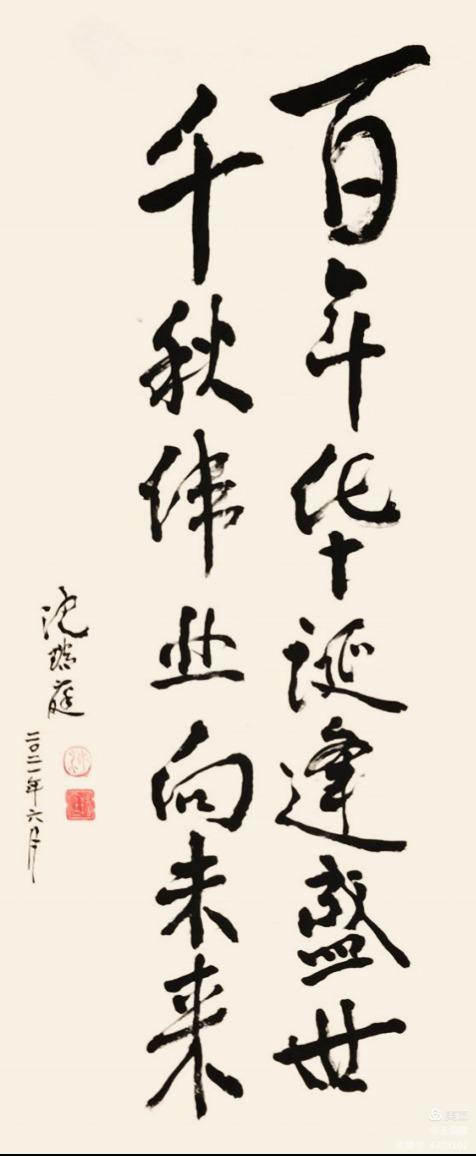 百年华诞逢盛世
千秋伟业向未来
沈瑞庭
二〇二一年六月